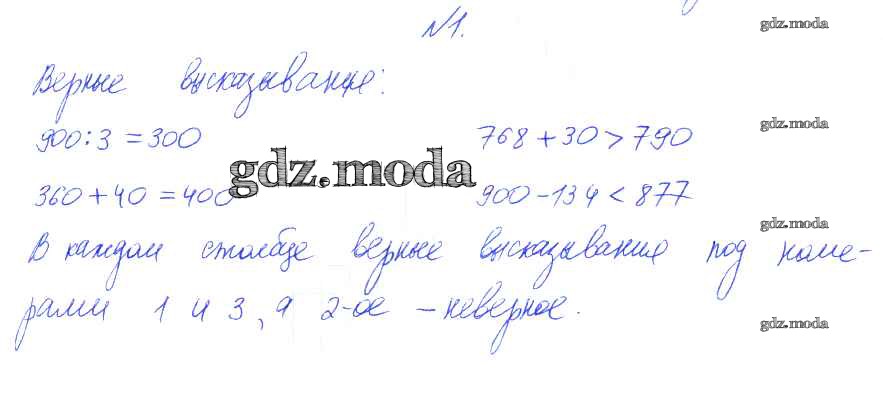 №1.
gdz.moda
Верные высказывание:
900:3=300 768+30>790
gdz.moda
gdz.moda
360+40=400 900-134<877
gdz.moda
В каждом столбце верные высказывание под номе-
рами 1 и 3, а 2-ое - неверное.
gdz.moda